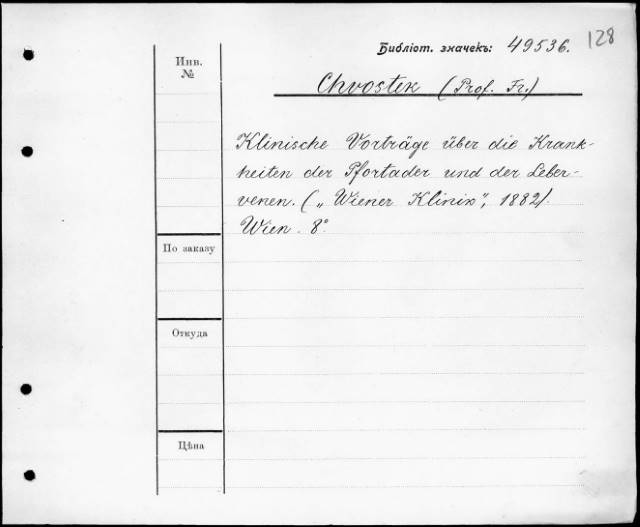 128
Библіот. значекъ: 49536.
Инв.
№
Chvostek (Prof. Fr.)
Klinische Vorträge über die Krank-
heiten der Pfortader und der Leber-
venen. („Wiener Klinik", 1882).
Wien. 8°
По заказу
Откуда
Цѣна